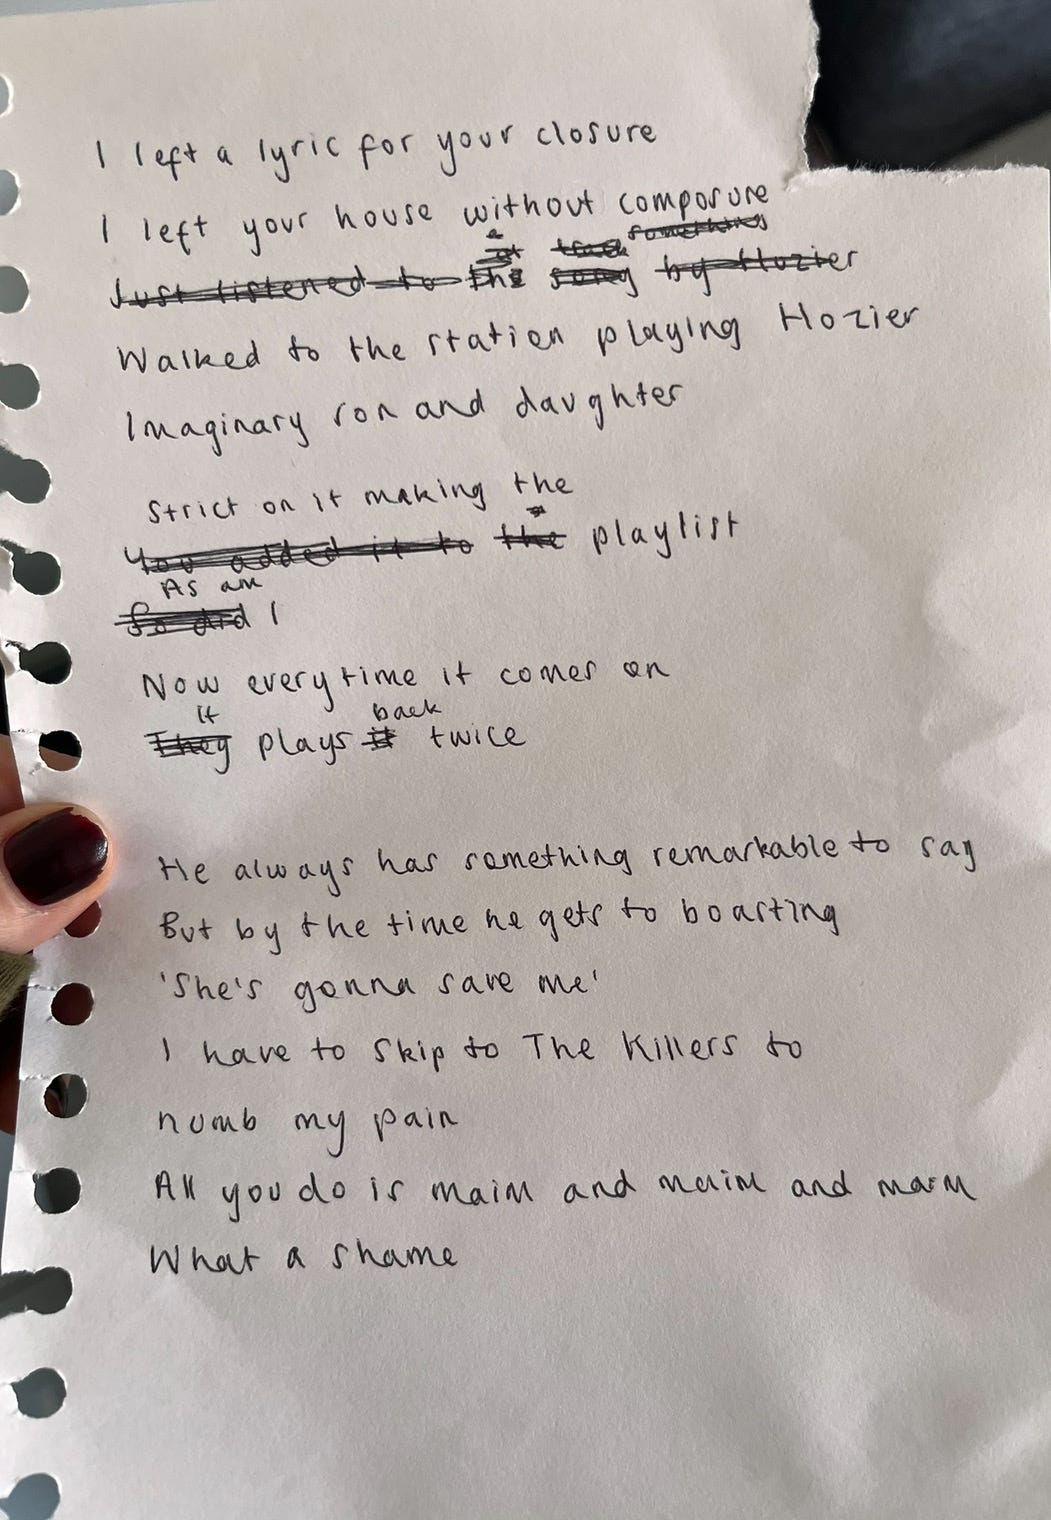 I left a lyric for your closure
I left your house without composure
a
at track something
Just listened to the song by Hozier
Walked to the station playing Hozier
Imaginary son and daughter
Strict on it making the
You added it to the playlist
As am
So did I
Now everytime it comes on
It back
They plays it twice
He always has something remarkable to say
But by the time he gets to boasting
'She's gonna save me'
I have to skip to The Killers to
numb my pain
All you do is maim and maim and maim
What a shame